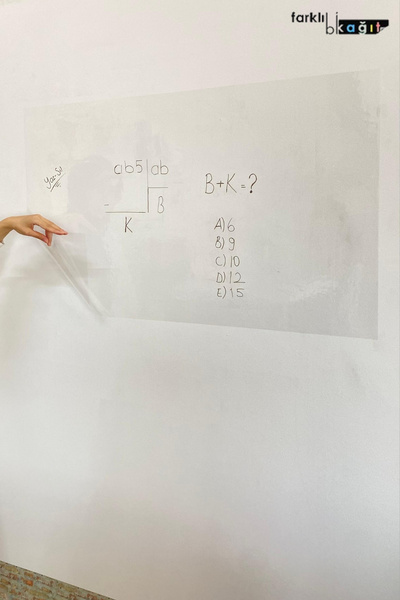 farklı
bi kağıt
ab5 ab
B
-
K
B+K=?
A)6
B)9
C)10
D)12
E)15